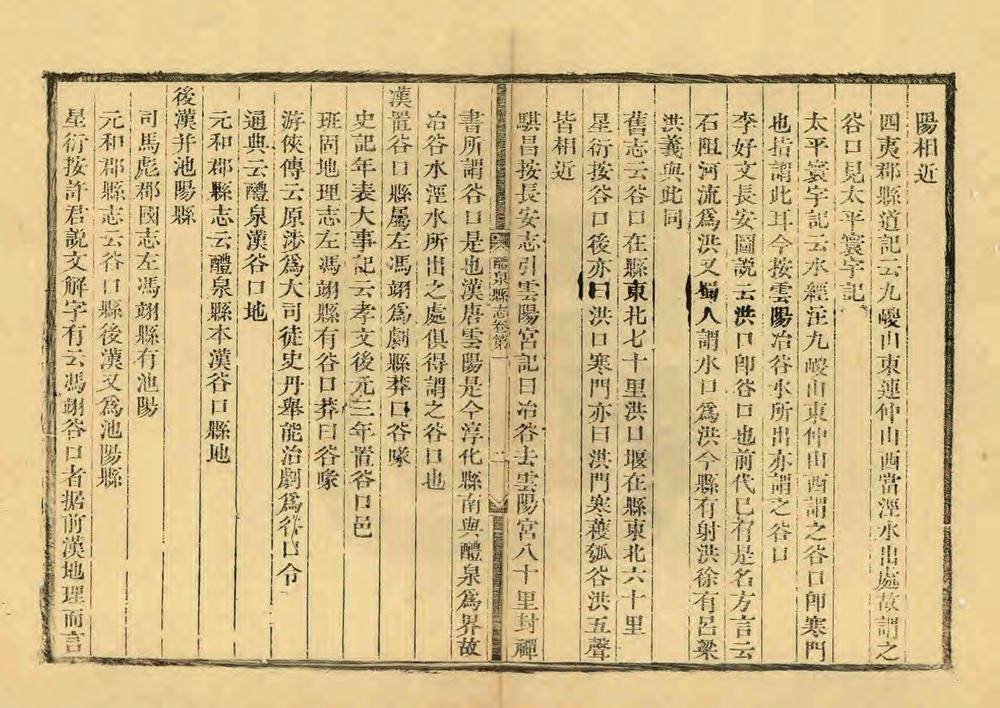 陽相近
四夷郡縣道記云九嵕山東連仲山西當涇水出處故謂之
谷口見太平寰宇記
太平寰宇記云水經注九嵕山東仲山西謂之谷口卽寒門
也指謂此耳今按雲陽冶谷水所出亦謂之谷口
李好文長安圖說云洪口卽谷口也前代已有是名方言云
石阻河流爲洪又蜀人謂水口爲洪今縣有射洪徐有呂梁
洪義與此同
舊志云谷口在縣東北七十里洪口堰在縣東北六十里
星衍按谷口後亦曰洪口寒門亦曰洪門寒穫瓠谷洪五聲
皆相近
騏昌按長安志引雲陽宮記曰冶谷去雲陽宮八十里封禪
醴泉縣志卷第一 二
書所謂谷口是也漢唐雲陽是今淳化縣南與醴泉爲界故
冶谷水涇水所出之處俱得謂之谷口也
漢置谷口縣屬左馮翊爲劇縣莽曰谷喙
史記年表大事記云孝文後元三年置谷口邑
班固地理志左馮翊縣有谷口莽曰谷喙
游俠傳云原涉爲大司徒史丹舉能治劇爲谷口令
通典云醴泉漢谷口地
元和郡縣志云醴泉縣本漢谷口縣地
後漢并池陽縣
司馬彪郡國志左馮翊縣有池陽
元和郡縣志云谷口縣後漢又爲池陽縣
星衍按許君說文解字有云馮翊谷口者据前漢地理而言